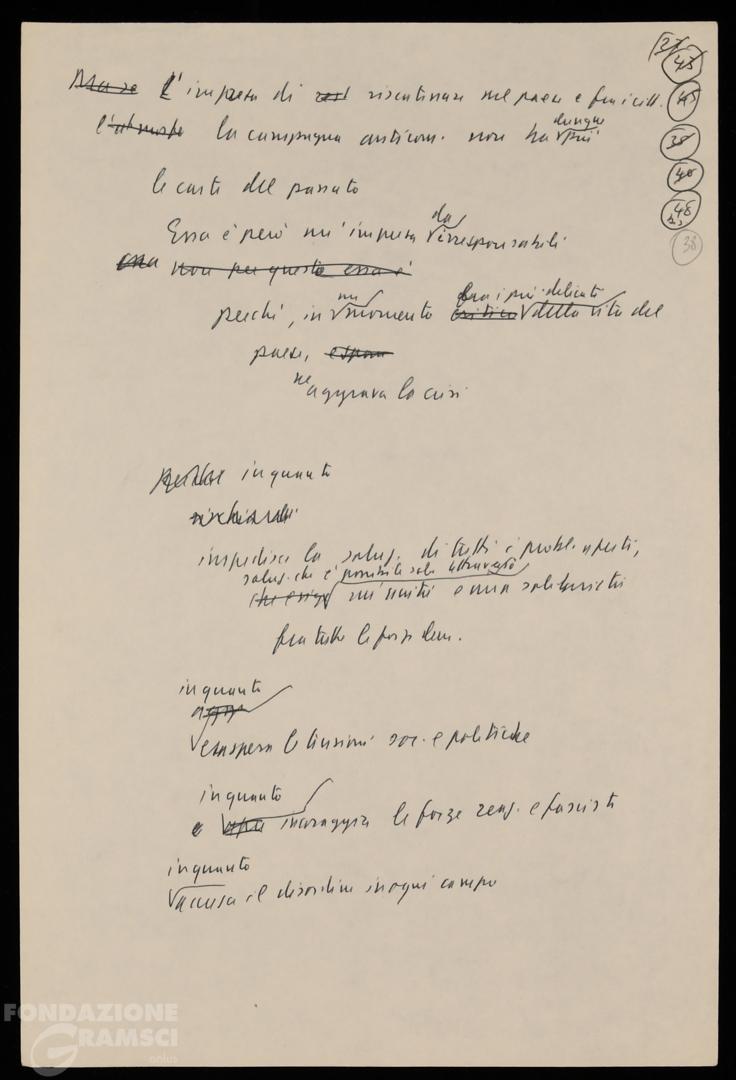 37
45
45
38
40
48
bis
38
Ma se L'impresa di risuscitare nel paese e fra i citt.
la campagna anticom. non ha dunque più
le carte del passato
Essa è però un'impresa da irresponsabili
essa non per questo essa è
perché, in un momento critico fra i più delicati della vita del
paese,
ne aggrava la crisi
perché inquanto
impedisce la soluz. di tutti i probl. aperti,
soluz. che è possibile solo attraverso
che esige un'unità e una solidarietà
fra tutte le forze dem.
inquanto
esaspera le tensioni soc. e politiche
inquanto
e incoraggia le forze reaz. e fasciste
inquanto
accresce il disordine in ogni campo
FONDAZIONE
GRAMSCI
onlus